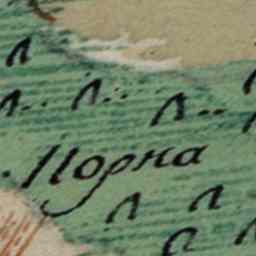 Порна